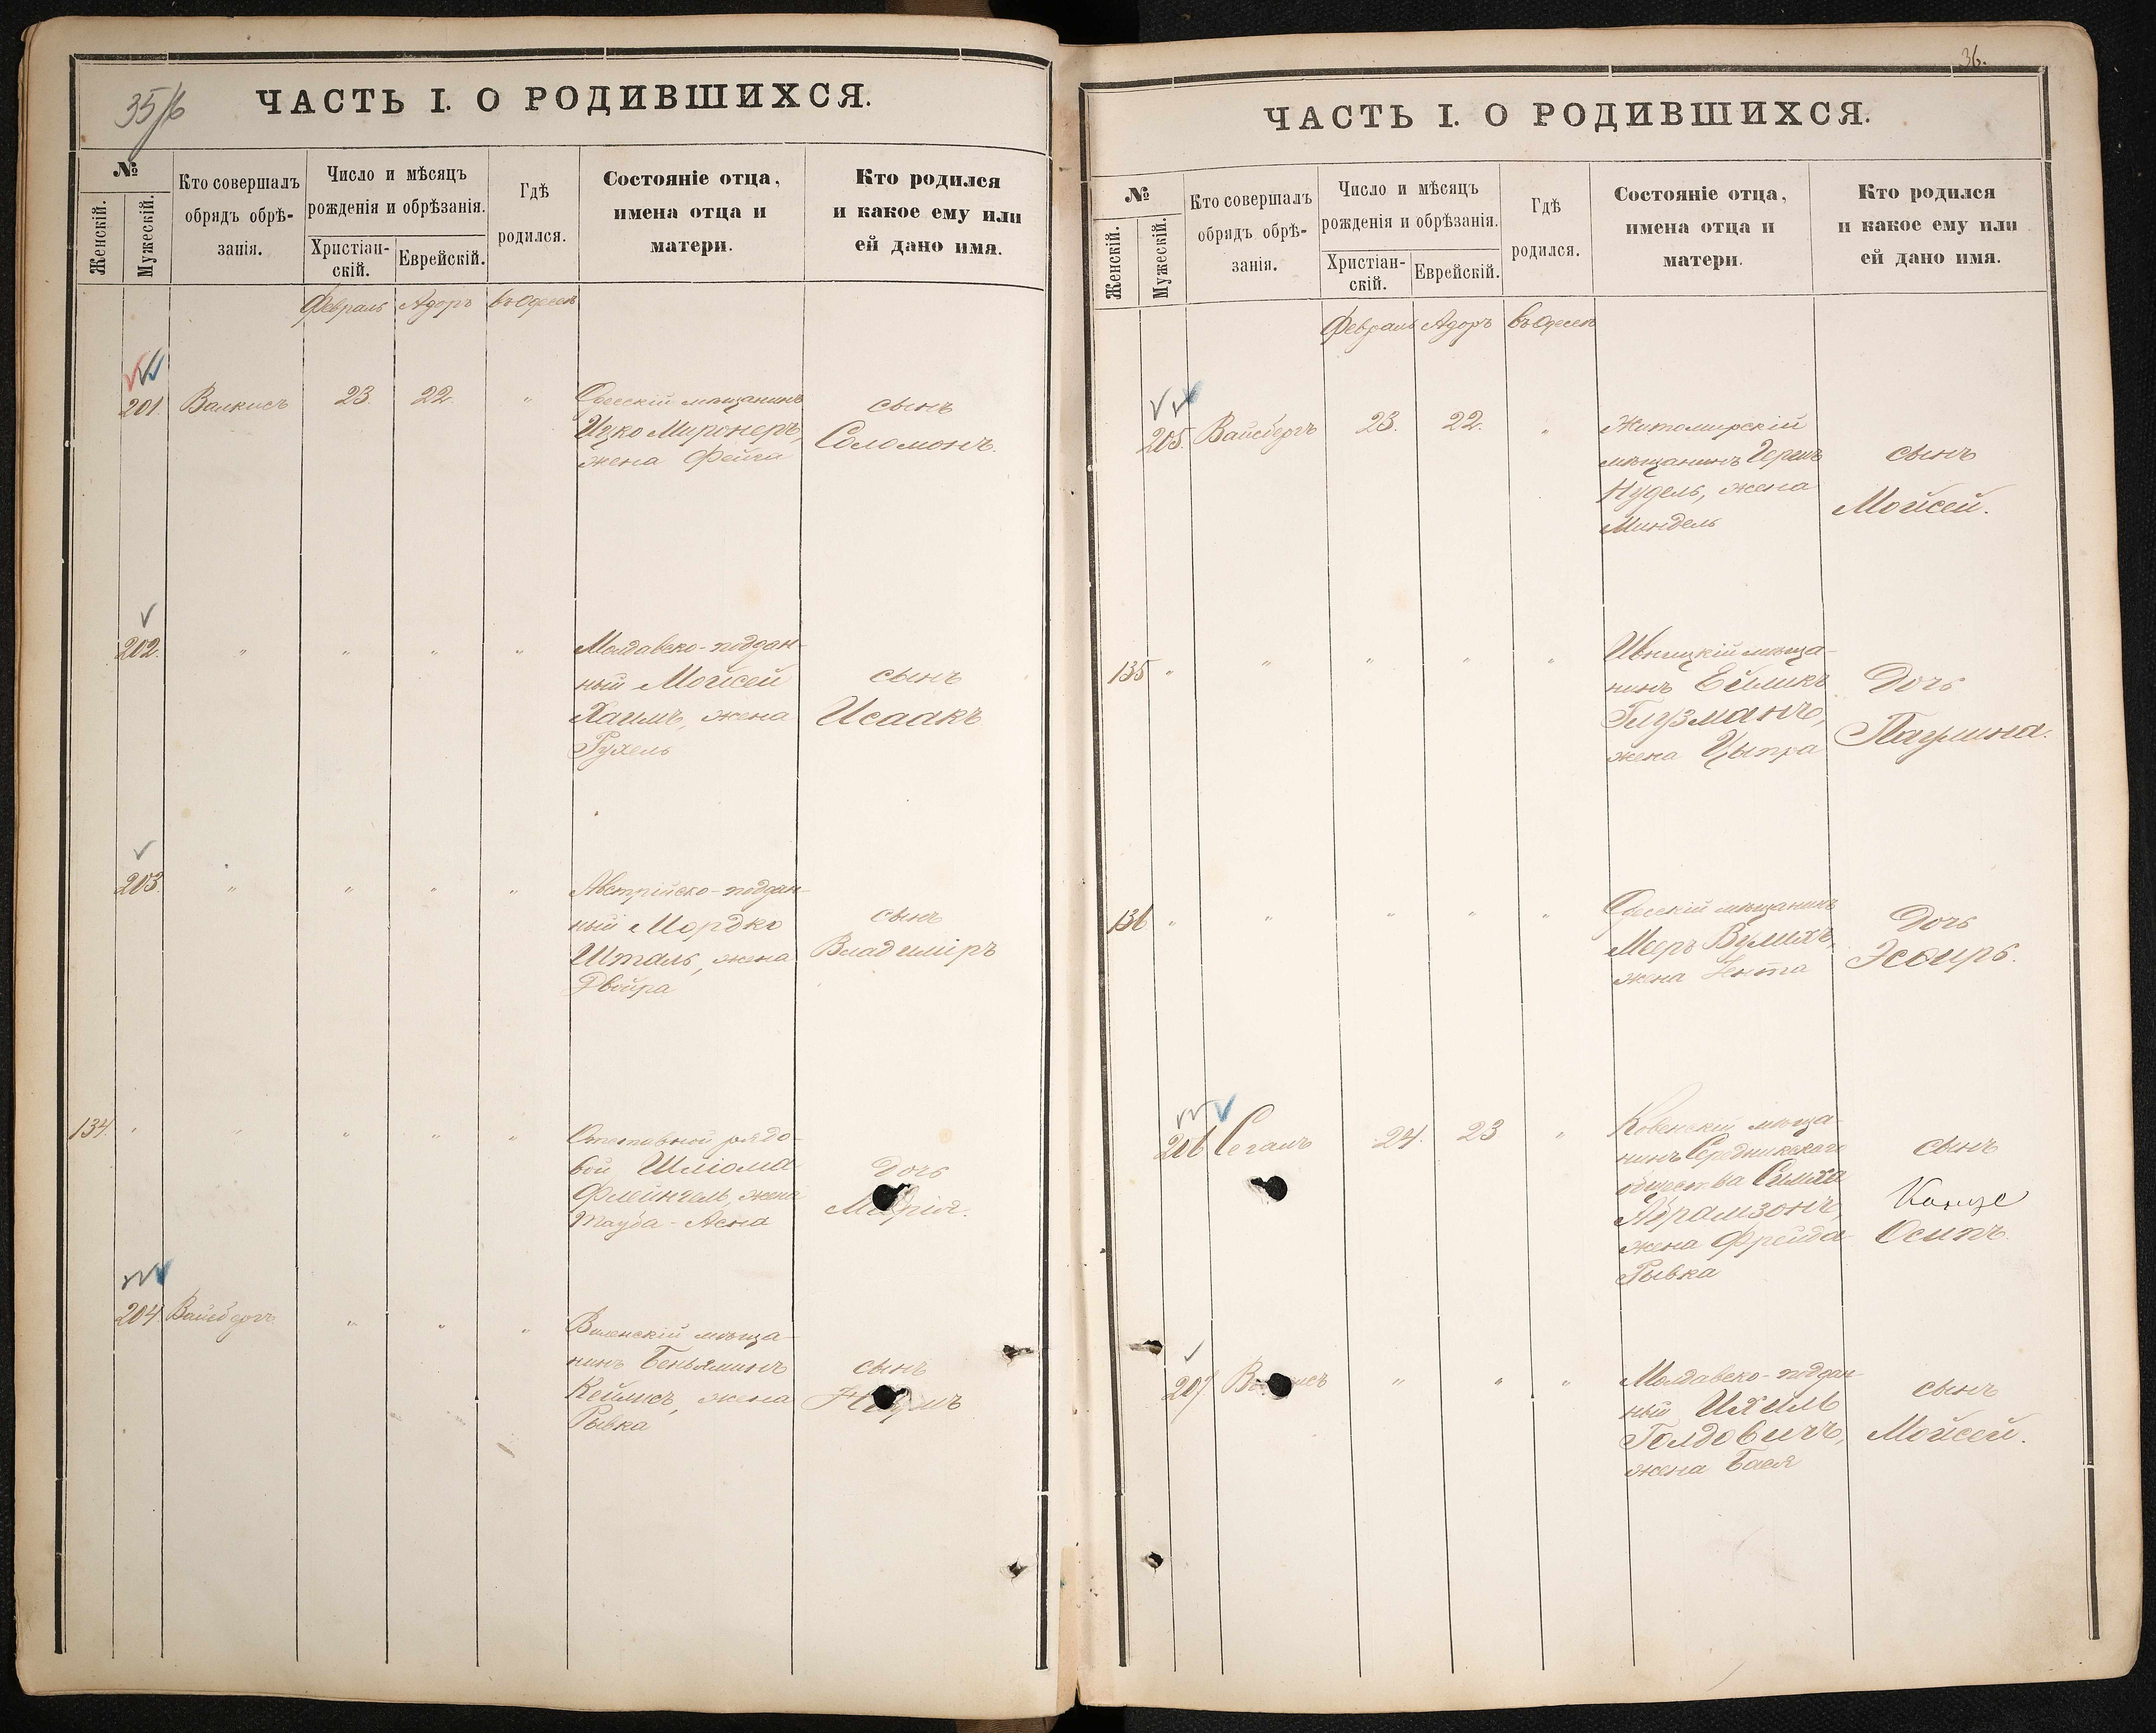 35/6
ЧАСТЬ I. О РОДИВШИХСЯ.
№
Женскій.
Мужескій.
Кто совершалъ
обрядъ обрѣ-
занія.
Число и мѣсяцъ
рожденія и обрѣзанія.
Христіан-
скій.
Еврейскій.
Гдѣ
родился.
Состояніе отца,
имена отца и
матери.
Кто родился
и какое ему или
ей дано имя.
Февраль Адоръ въ Одессѣ
201. Валкисъ 23. 22. "
Одесскій мѣщанинъ
Ицко Миронеръ,
жена Фейга
сынъ
Соломонъ.
202. " " " "
Молдавско-поддан-
ный Мойсей
Хаимъ, жена
Рухель
сынъ
Исаакъ
203. " " " "
Австрійско-поддан-
ный Мордко
Шталь, жена
Двойра
сынъ
Владиміръ
134. " " " " "
Отставной рядо-
вой Шліома
Флейнгель, жена
Тауба-Асна
Дочь
Марія.
204. Вайсбергъ " " "
Виленскій мѣща-
нинъ Беньяминъ
Кейлисъ, жена
Рывка
сынъ
Наумъ
36.
ЧАСТЬ I. О РОДИВШИХСЯ.
№
Женскій.
Мужескій.
Кто совершалъ
обрядъ обрѣ-
занія.
Число и мѣсяцъ
рожденія и обрѣзанія.
Христіан-
скій.
Еврейскій.
Гдѣ
родился.
Состояніе отца,
имена отца и
матери.
Кто родился
и какое ему или
ей дано имя.
Февраль Адоръ въ Одессѣ
205. Вайсбергъ 23. 22. "
Житомирскій
мѣщанинъ Гершъ
Нудель, жена
Миндель
сынъ
Мойсей.
135 " " " " "
мѣща-
нинъ Ейликъ
Глузманъ,
жена Цыпра
Дочь
Паулина.
136 " " " " "
Одесскій мѣщанинъ
Мееръ Вулихъ,
жена Ента
Дочь
Эсѳирь.
206 Сегалъ 24. 23 "
Ковенскій мѣща-
нинъ Середникскаго
общества Симха
Абрамзонъ,
жена Фрейда-
Рывка
сынъ
Осипъ.
207 Валкисъ " " "
Молдавско-поддан-
ный Ихиль
Голдовичъ,
жена Бася
сынъ
Мойсей.